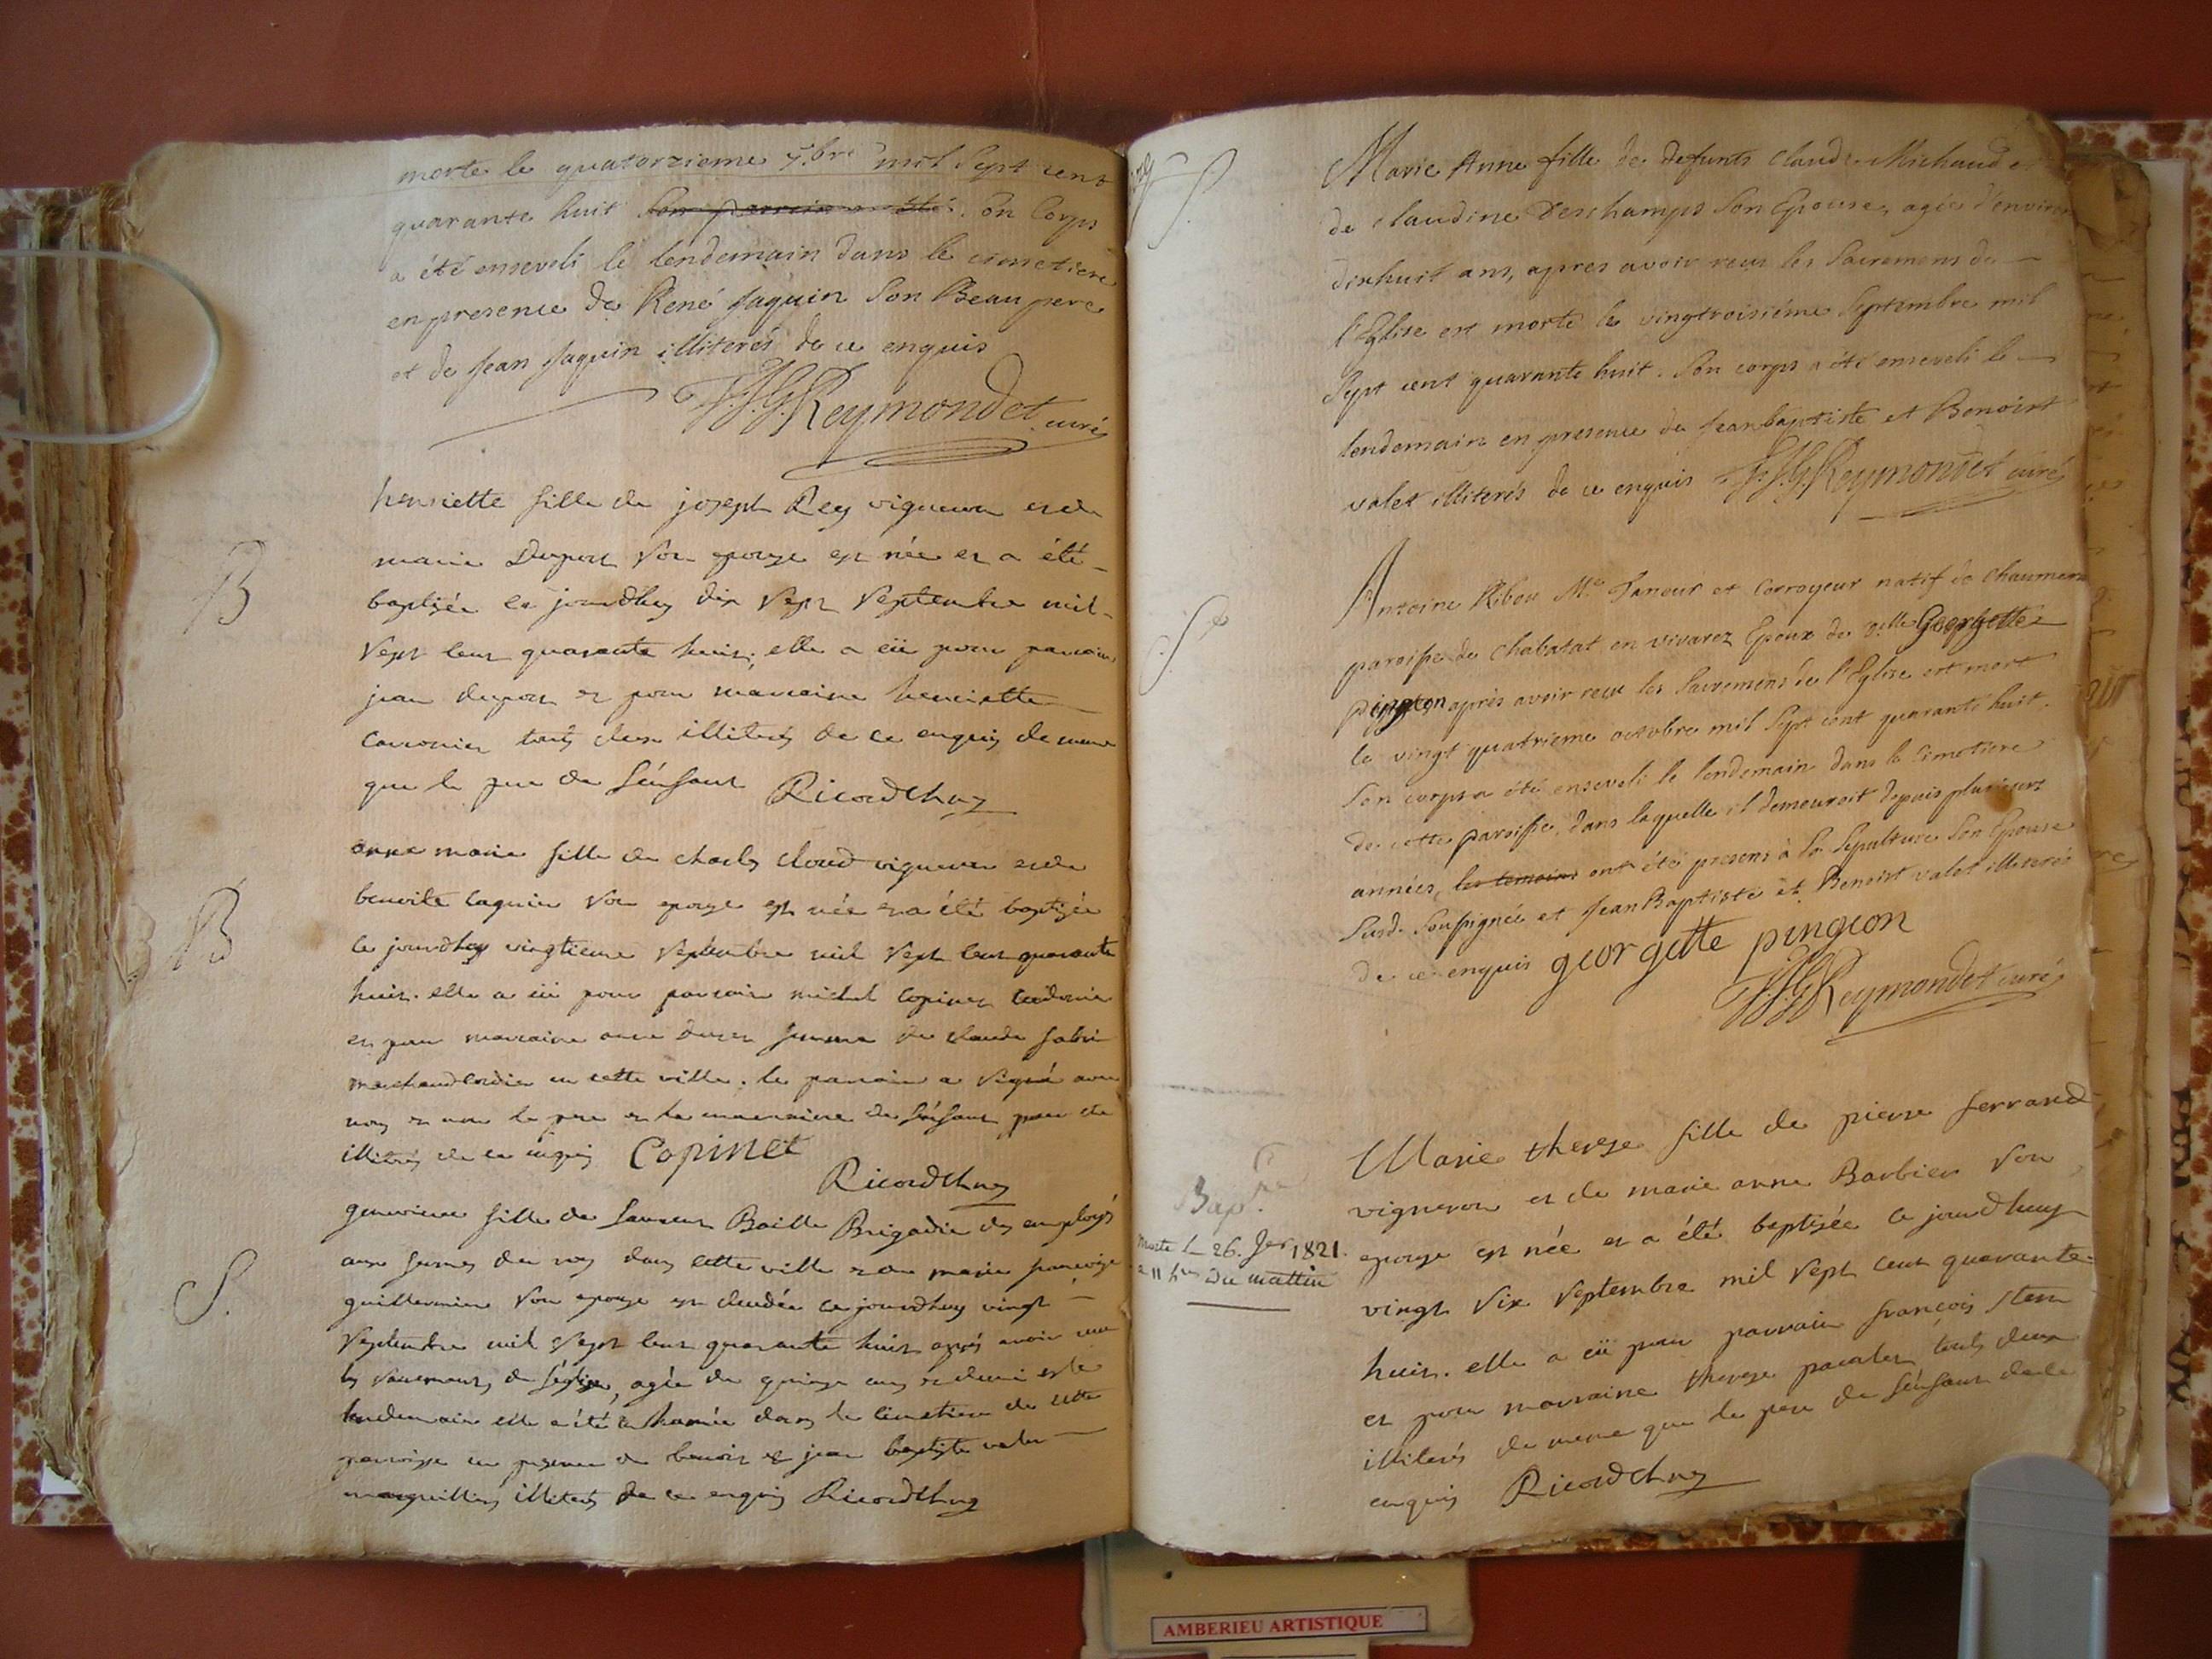 morte le quatorzieme 7.bre mil Sept cent
quarante huit Son parrain a été. Son Corps
a été enseveli le lendemain dans le cimetiere
en presence de René Jaquin Son Beau pere
et de Jean Jaquin illiterés de ce enquis
Reymondet curé
B
henriette fille de joseph Rey vigneron et de
marie Dupont son epouse est née et a été
baptisée ce jourdhuy dix sept septembre mil
sept cent quarante huit, elle a eü pour parrain
jean dupont et pour marraine henriette
tous deux illiterés de ce enquis de meme
que le pere de l'enfant Ricordthuz
B
anne marie fille de charles cloud vigneron et de
benoite Jaquin son epouse est née et a été baptisée
ce jourdhuy vingtieme septembre mil sept cent quarante
huit. elle a eü pour parrain michel Copinet
et pour marraine anne femme de claude fabri
marchand en cette ville. le parrain a signé avec
nous et non le pere et la marraine de l'enfant pour etre
illiterés de ce enquis Copinet
Ricordthuz
S.
genevieve fille de Laurent Baille Brigadier des employés
aux fermes du roy dans cette ville et de marie françoise
guillermin son epouse est decedée ce jourdhuy vingt
septembre mil sept cent quarante huit aprés avoir reçu
les sacremens de l'eglise, agée de quinze ans et demi et le
lendemain elle a été inhumée dans le cimetiere de cette
parroisse en presence de benoit et jean baptiste valet
marguilliers illiterés de ce enquis Ricordthuz
S.
Marie Anne fille de defunts Claude Michaud et
de Claudine Deschamps Son Epouse, agée d'environ
dixhuit ans, apres avoir reçu les Sacremens de
l'Eglise est morte le vingtroisiéme Septembre mil
Sept cent quarante huit. Son corps a été enseveli le
lendemain en presence de Jean baptiste et Benoist
valet illiterés de ce enquis Reymondet curé
S.
Antoine Ribou M.e Taneur et Corroyeur natif de Chaumens
paroisse de Chabatat en vivarez Epoux de d.elle Georgette
pingeon après avoir reçu les Sacremens de l'Eglise est mort
le vingt quatrieme octobre mil Sept cent quarante huit.
Son corps a été enseveli le lendemain dans le Cimetiere
de cette paroisse, dans laquelle il demeuroit depuis plusieurs
années, les temoins ont été presens à Sa Sepulture Son Epouse
Susd. Soussignée et Jean Baptiste et Benoist valet illiterés
de ce enquis georgette pingeon
Reymondet curé
Bap.
morte le 26. Jer 1821.
a 11 hres du mattin
Marie therese fille de pierre ferrand
vigneron et de marie anne Barbier son
epouse est née et a été baptisée ce jourdhuy
vingt six septembre mil sept cent quarante
huit. elle a eü pour parrain françois
et pour marraine therese tous deux
illiterés de meme que le pere de l'enfant de ce
enquis Ricordthuz
AMBERIEU ARTISTIQUE